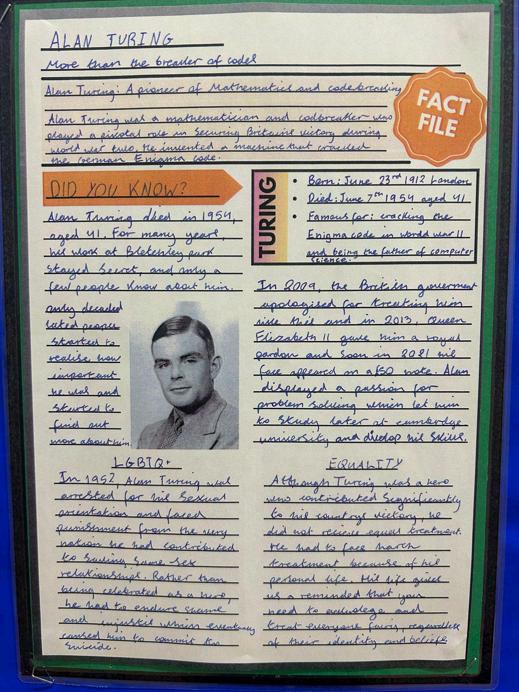 ALAN TURING
More than the breaker of codes
Alan Turing: A pioneer of Mathematics and codebreaking
Alan Turing was a mathematician and codebreaker who
played a pivotal role in Securing Britains victory during
world war two. He invented a machine that cracked
the German Enigma code.
FACT
FILE
DID YOU KNOW?
Alan Turing died in 1954,
aged 41. For many years,
his work at Bletchley park
stayed Secret, and only a
few people know about him.
only decades
lated people
started to
realise how
important
he was and
started to
find out
more about him.
TURING
• Born: June 23rd 1912 London
• Died: June 7th 1954 aged 41
• Famous for: cracking the
Enigma code in world war II
and being the father of computer
science.
In 2009, the British goverment
apologised for treating him
like this and in 2013, Queen
Elizabeth II gave him a royal
pardon and soon in 2021 his
face appeared in a £50 note. Alan
displayed a passion for
problem solving which let him
to study later at cambridge
university and his skills.
LGBTQ+
In 1952, Alan Turing was
arrested for his sexual
orientation and faced
punishment from the very
nation he had contributed
to saving same sex
relationships. Rather than
being celebrated as a hero,
he had to endure shame
and which eventually
caused him to commit
Suicide.
EQUALITY
Although Turing was a hero
who contributed Significantly
to his country victory, he
did not recieve equal treatment.
He had to face harsh
treatment because of his
personal life. His life gives
us a reminded that you
need to and
treat everyone fairs, regardless
of their identity and beliefs